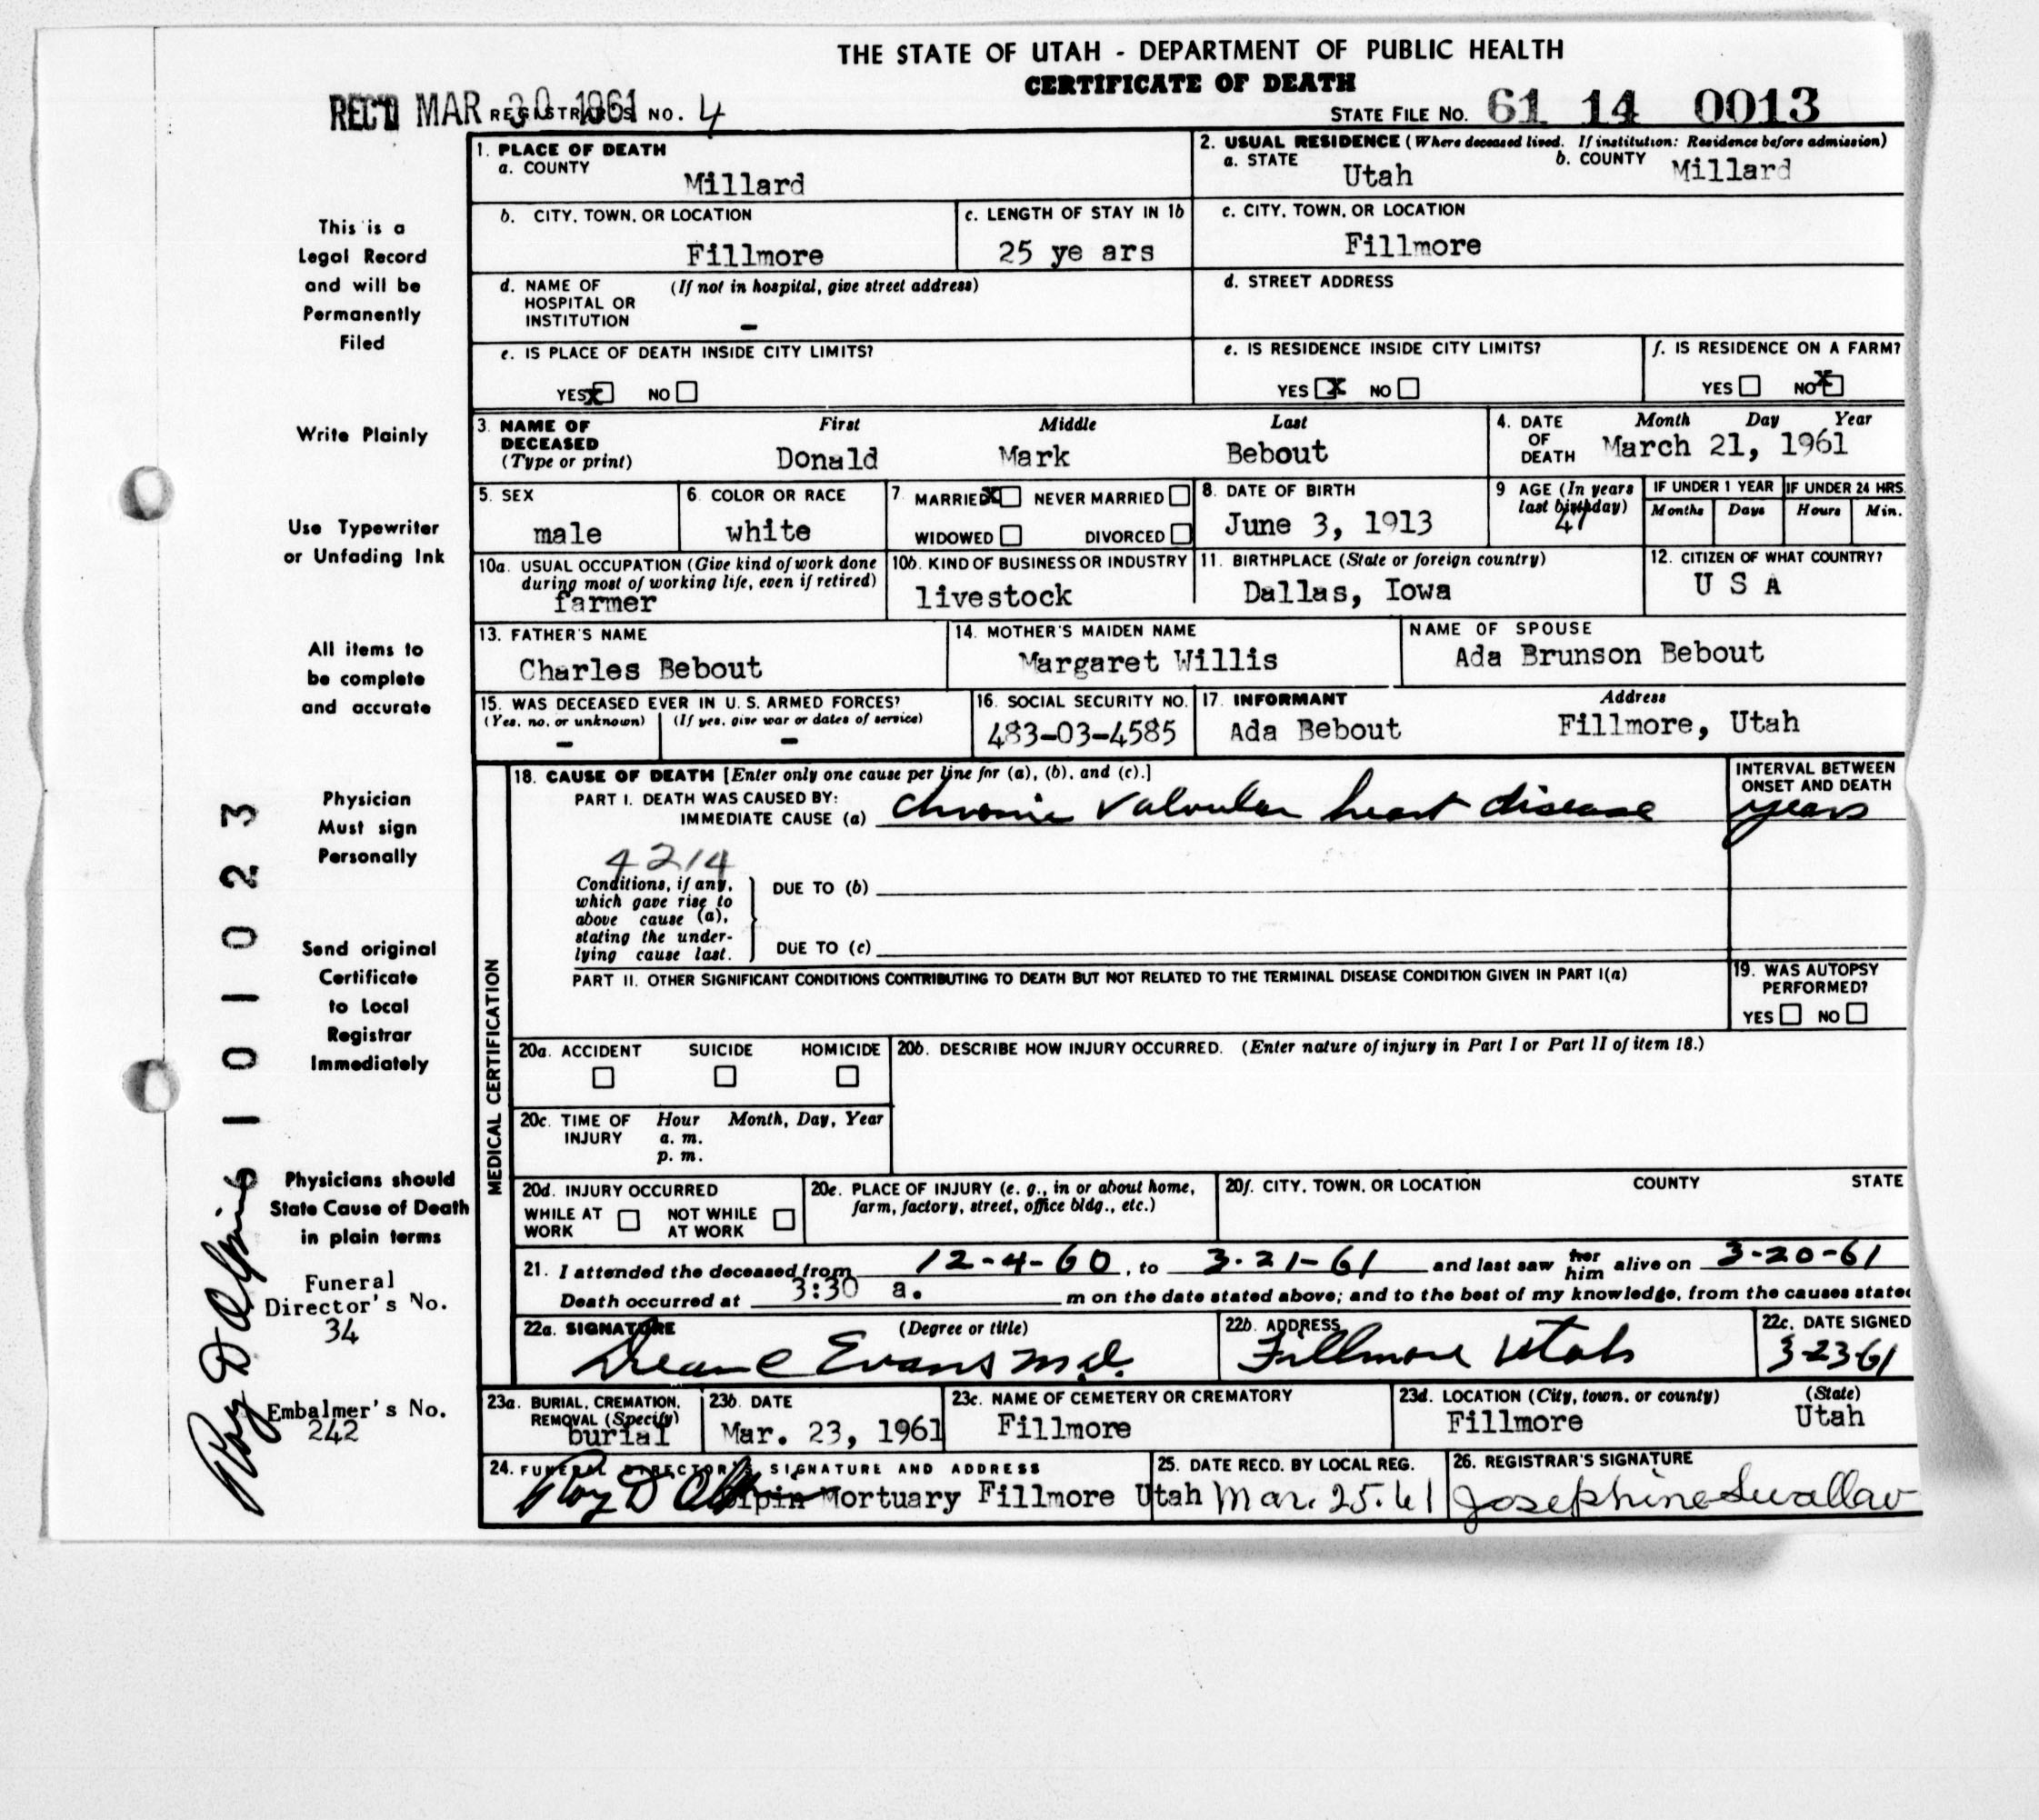 THE STATE OF UTAH - DEPARTMENT OF PUBLIC HEALTH
CERTIFICATE OF DEATH
REC'D MAR 30 1961 REGISTRAR'S NO. 4
STATE FILE NO. 61 14 0013
1. PLACE OF DEATH
a. COUNTY
Millard
2. USUAL RESIDENCE (Where deceased lived. If institution: Residence before admission)
a. STATE
Utah
b. COUNTY
Millard
b. CITY, TOWN, OR LOCATION
Fillmore
c. LENGTH OF STAY IN 1b
25 ye ars
c. CITY, TOWN, OR LOCATION
Fillmore
d. NAME OF HOSPITAL OR INSTITUTION
(If not in hospital, give street address)
-
d. STREET ADDRESS
e. IS PLACE OF DEATH INSIDE CITY LIMITS?
YES X NO
e. IS RESIDENCE INSIDE CITY LIMITS?
YES X NO
f. IS RESIDENCE ON A FARM?
YES NO X
3. NAME OF DECEASED
(Type or print)
First Middle Last
Donald Mark Bebout
4. DATE OF DEATH
Month Day Year
March 21, 1961
5. SEX
male
6. COLOR OR RACE
white
7. MARRIED X NEVER MARRIED
WIDOWED DIVORCED
8. DATE OF BIRTH
June 3, 1913
9 AGE (In years last birthday)
47
IF UNDER 1 YEAR
Months Days
IF UNDER 24 HRS.
Hours Min.
10a. USUAL OCCUPATION (Give kind of work done during most of working life, even if retired)
farmer
10b. KIND OF BUSINESS OR INDUSTRY
livestock
11. BIRTHPLACE (State or foreign country)
Dallas, Iowa
12. CITIZEN OF WHAT COUNTRY?
U S A
13. FATHER'S NAME
Charles Bebout
14. MOTHER'S MAIDEN NAME
Margaret Willis
NAME OF SPOUSE
Ada Brunson Bebout
15. WAS DECEASED EVER IN U. S. ARMED FORCES?
(Yes, no, or unknown) (If yes, give war or dates of service)
- -
16. SOCIAL SECURITY NO.
483-03-4585
17. INFORMANT Address
Ada Bebout Fillmore, Utah
MEDICAL CERTIFICATION
18. CAUSE OF DEATH [Enter only one cause per line for (a), (b), and (c).]
PART I. DEATH WAS CAUSED BY:
IMMEDIATE CAUSE (a) Chronic Valvular heart disease
INTERVAL BETWEEN ONSET AND DEATH
years
4214
Conditions, if any, which gave rise to above cause (a), stating the underlying cause last.
DUE TO (b)
DUE TO (c)
PART II. OTHER SIGNIFICANT CONDITIONS CONTRIBUTING TO DEATH BUT NOT RELATED TO THE TERMINAL DISEASE CONDITION GIVEN IN PART I(a)
19. WAS AUTOPSY PERFORMED?
YES NO
20a. ACCIDENT SUICIDE HOMICIDE
20b. DESCRIBE HOW INJURY OCCURRED. (Enter nature of injury in Part I or Part II of item 18.)
20c. TIME OF INJURY
Hour Month, Day, Year
a. m.
p. m.
20d. INJURY OCCURRED
WHILE AT WORK NOT WHILE AT WORK
20e. PLACE OF INJURY (e. g., in or about home, farm, factory, street, office bldg., etc.)
20f. CITY, TOWN, OR LOCATION COUNTY STATE
21. I attended the deceased from 12-4-60, to 3-21-61 and last saw her him alive on 3-20-61
Death occurred at 3:30 a. m on the date stated above; and to the best of my knowledge, from the causes stated
22a. SIGNATURE (Degree or title)
Deane Evans M.D.
22b. ADDRESS
Fillmore Utah
22c. DATE SIGNED
3-23-61
23a. BURIAL, CREMATION, REMOVAL (Specify)
burial
23b. DATE
Mar. 23, 1961
23c. NAME OF CEMETERY OR CREMATORY
Fillmore
23d. LOCATION (City, town, or county) (State)
Fillmore Utah
24. FUNERAL DIRECTOR'S SIGNATURE AND ADDRESS
Roy D Olpin Olpin Mortuary Fillmore Utah
25. DATE RECD. BY LOCAL REG.
Mar. 25.61
26. REGISTRAR'S SIGNATURE
Josephine Swallow
This is a
Legal Record
and will be
Permanently
Filed
Write Plainly
Use Typewriter
or Unfading Ink
All items to
be complete
and accurate
Physician
Must sign
Personally
Send original
Certificate
to Local
Registrar
Immediately
Physicians should
State Cause of Death
in plain terms
Funeral
Director's No.
34
Embalmer's No.
242
Roy D Olpin
6 1 0 1 0 2 3